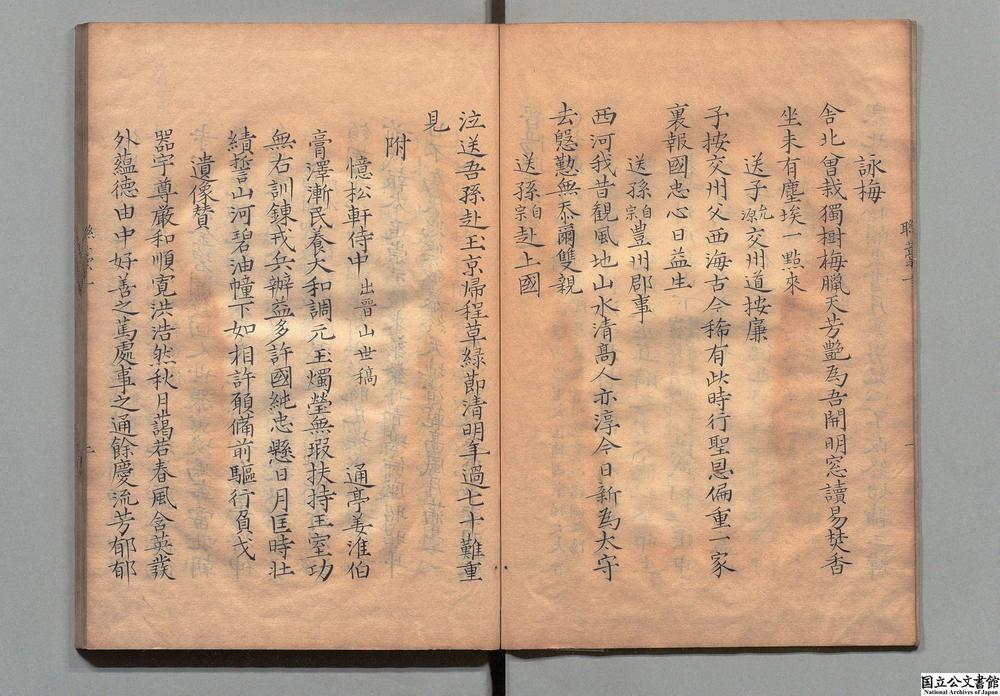 詠梅
舎北曽栽獨樹梅臘天芳艶為吾開明窓讀易焚香
坐未有塵埃一點來
送子允源交州道按廉
子按交州父西海古今稀有此時行聖恩偏重一家
裏報國忠心日益生
送孫自宗豊州郡事
西河我昔観風地山水清髙人亦淳今日新為太守
去慇懃無忝爾雙親
送孫自宗赴上國
泣送吾孫赴玉京帰程草緑節清明年過七十難重
見
附
憶松軒侍中 出晉山世稿 通亭姜淮伯
膏澤漸民養大和調元玉燭瑩無瑕扶持王室功
無右訓錬戎兵辦益多許國純忠懸日月匡時壮
績誓山河碧油幢下如相許願備前驅行負戈
遺像賛
器宇尊厳和順寛洪浩然秋月藹若春風含英發
外蘊德由中好善之篤處事之通餘慶流芳郁郁
国立公文書館
National Archives of Japan